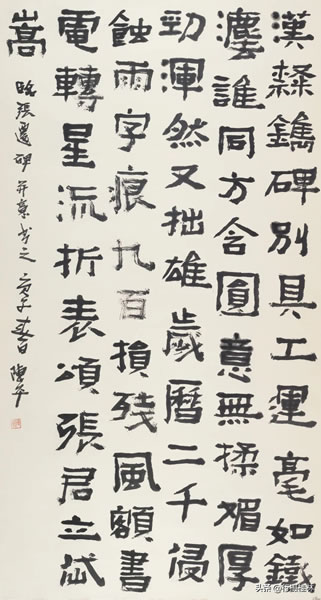 漢隸鐫碑別具工運毫如鐵
灋誰同方含圓意無揉媚厚
勁渾然又拙雄歲曆二千侵
蝕雨字痕九百損殘風額書
電轉星流折表頌張君立岱
嵩
張遷碑并書之 庚子春日 陳平
头条